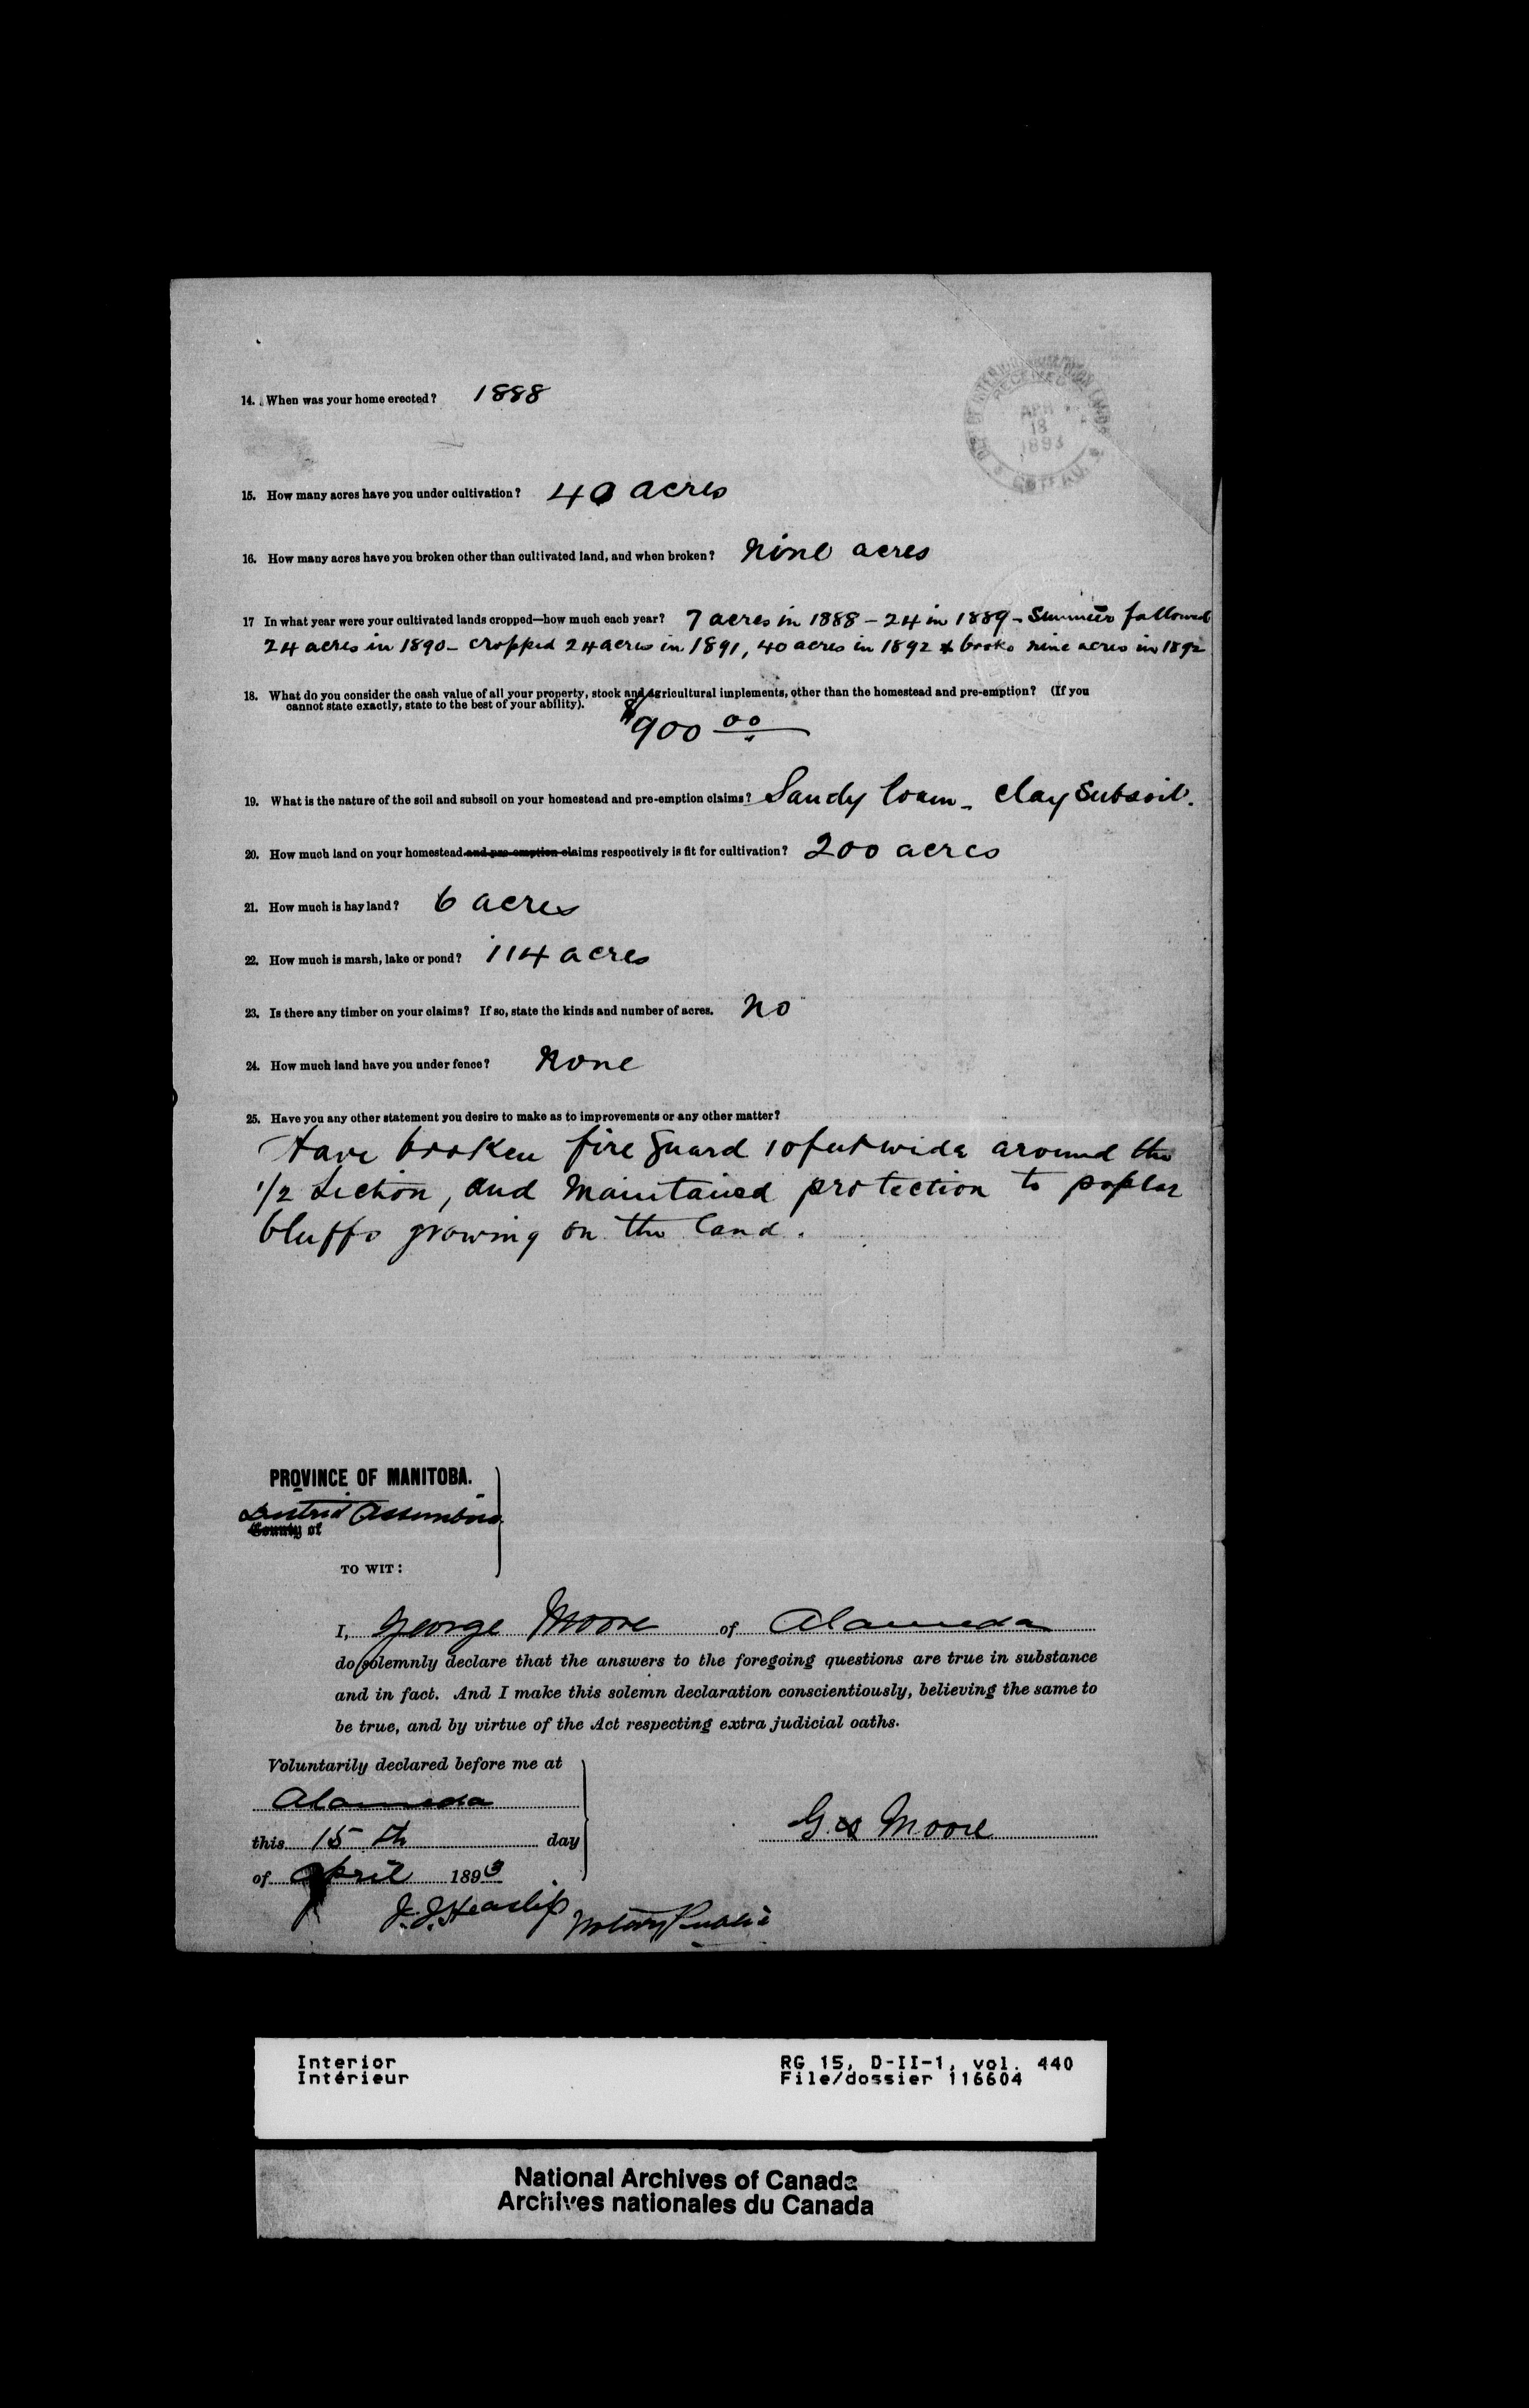 DEPT OF INTERIOR DOMINION LANDS
RECEIVED
APR
18
1893
OTTAWA
14. When was your home erected? 1888
15. How many acres have you under cultivation? 40 acres
16. How many acres have you broken other than cultivated land, and when broken? Nine acres
17 In what year were your cultivated lands cropped—how much each year? 7 acres in 1888 – 24 in 1889 – Summer fallowed
24 acres in 1890 – cropped 24 acres in 1891, 40 acres in 1892 & broke nine acres in 1892
18. What do you consider the cash value of all your property, stock and agricultural implements, other than the homestead and pre-emption? (If you
cannot state exactly, state to the best of your ability).
$900 00
19. What is the nature of the soil and subsoil on your homestead and pre-emption claims? Sandy loam – Clay Subsoil.
20. How much land on your homestead and pre-emption claims respectively is fit for cultivation? 200 acres
21. How much is hay land? 6 acres
22. How much is marsh, lake or pond? 114 acres
23. Is there any timber on your claims? If so, state the kinds and number of acres. No
24. How much land have you under fence? None
25. Have you any other statement you desire to make as to improvements or any other matter?
Have broken fire guard 10 feet wide around the
1/2 Section, and Maintained protection to poplar
bluffs growing on the land.
PROVINCE OF MANITOBA.
District Assiniboia
County of
TO WIT:
I, George Moore of Alameda
do solemnly declare that the answers to the foregoing questions are true in substance
and in fact. And I make this solemn declaration conscientiously, believing the same to
be true, and by virtue of the Act respecting extra judicial oaths.
Voluntarily declared before me at
Alameda
this 15th day
of April 1893
Geo Moore
J. J. Heaslip Notary Public
Interior
Intérieur
RG 15, D-II-1, vol. 440
File/dossier 116604
National Archives of Canada
Archives nationales du Canada